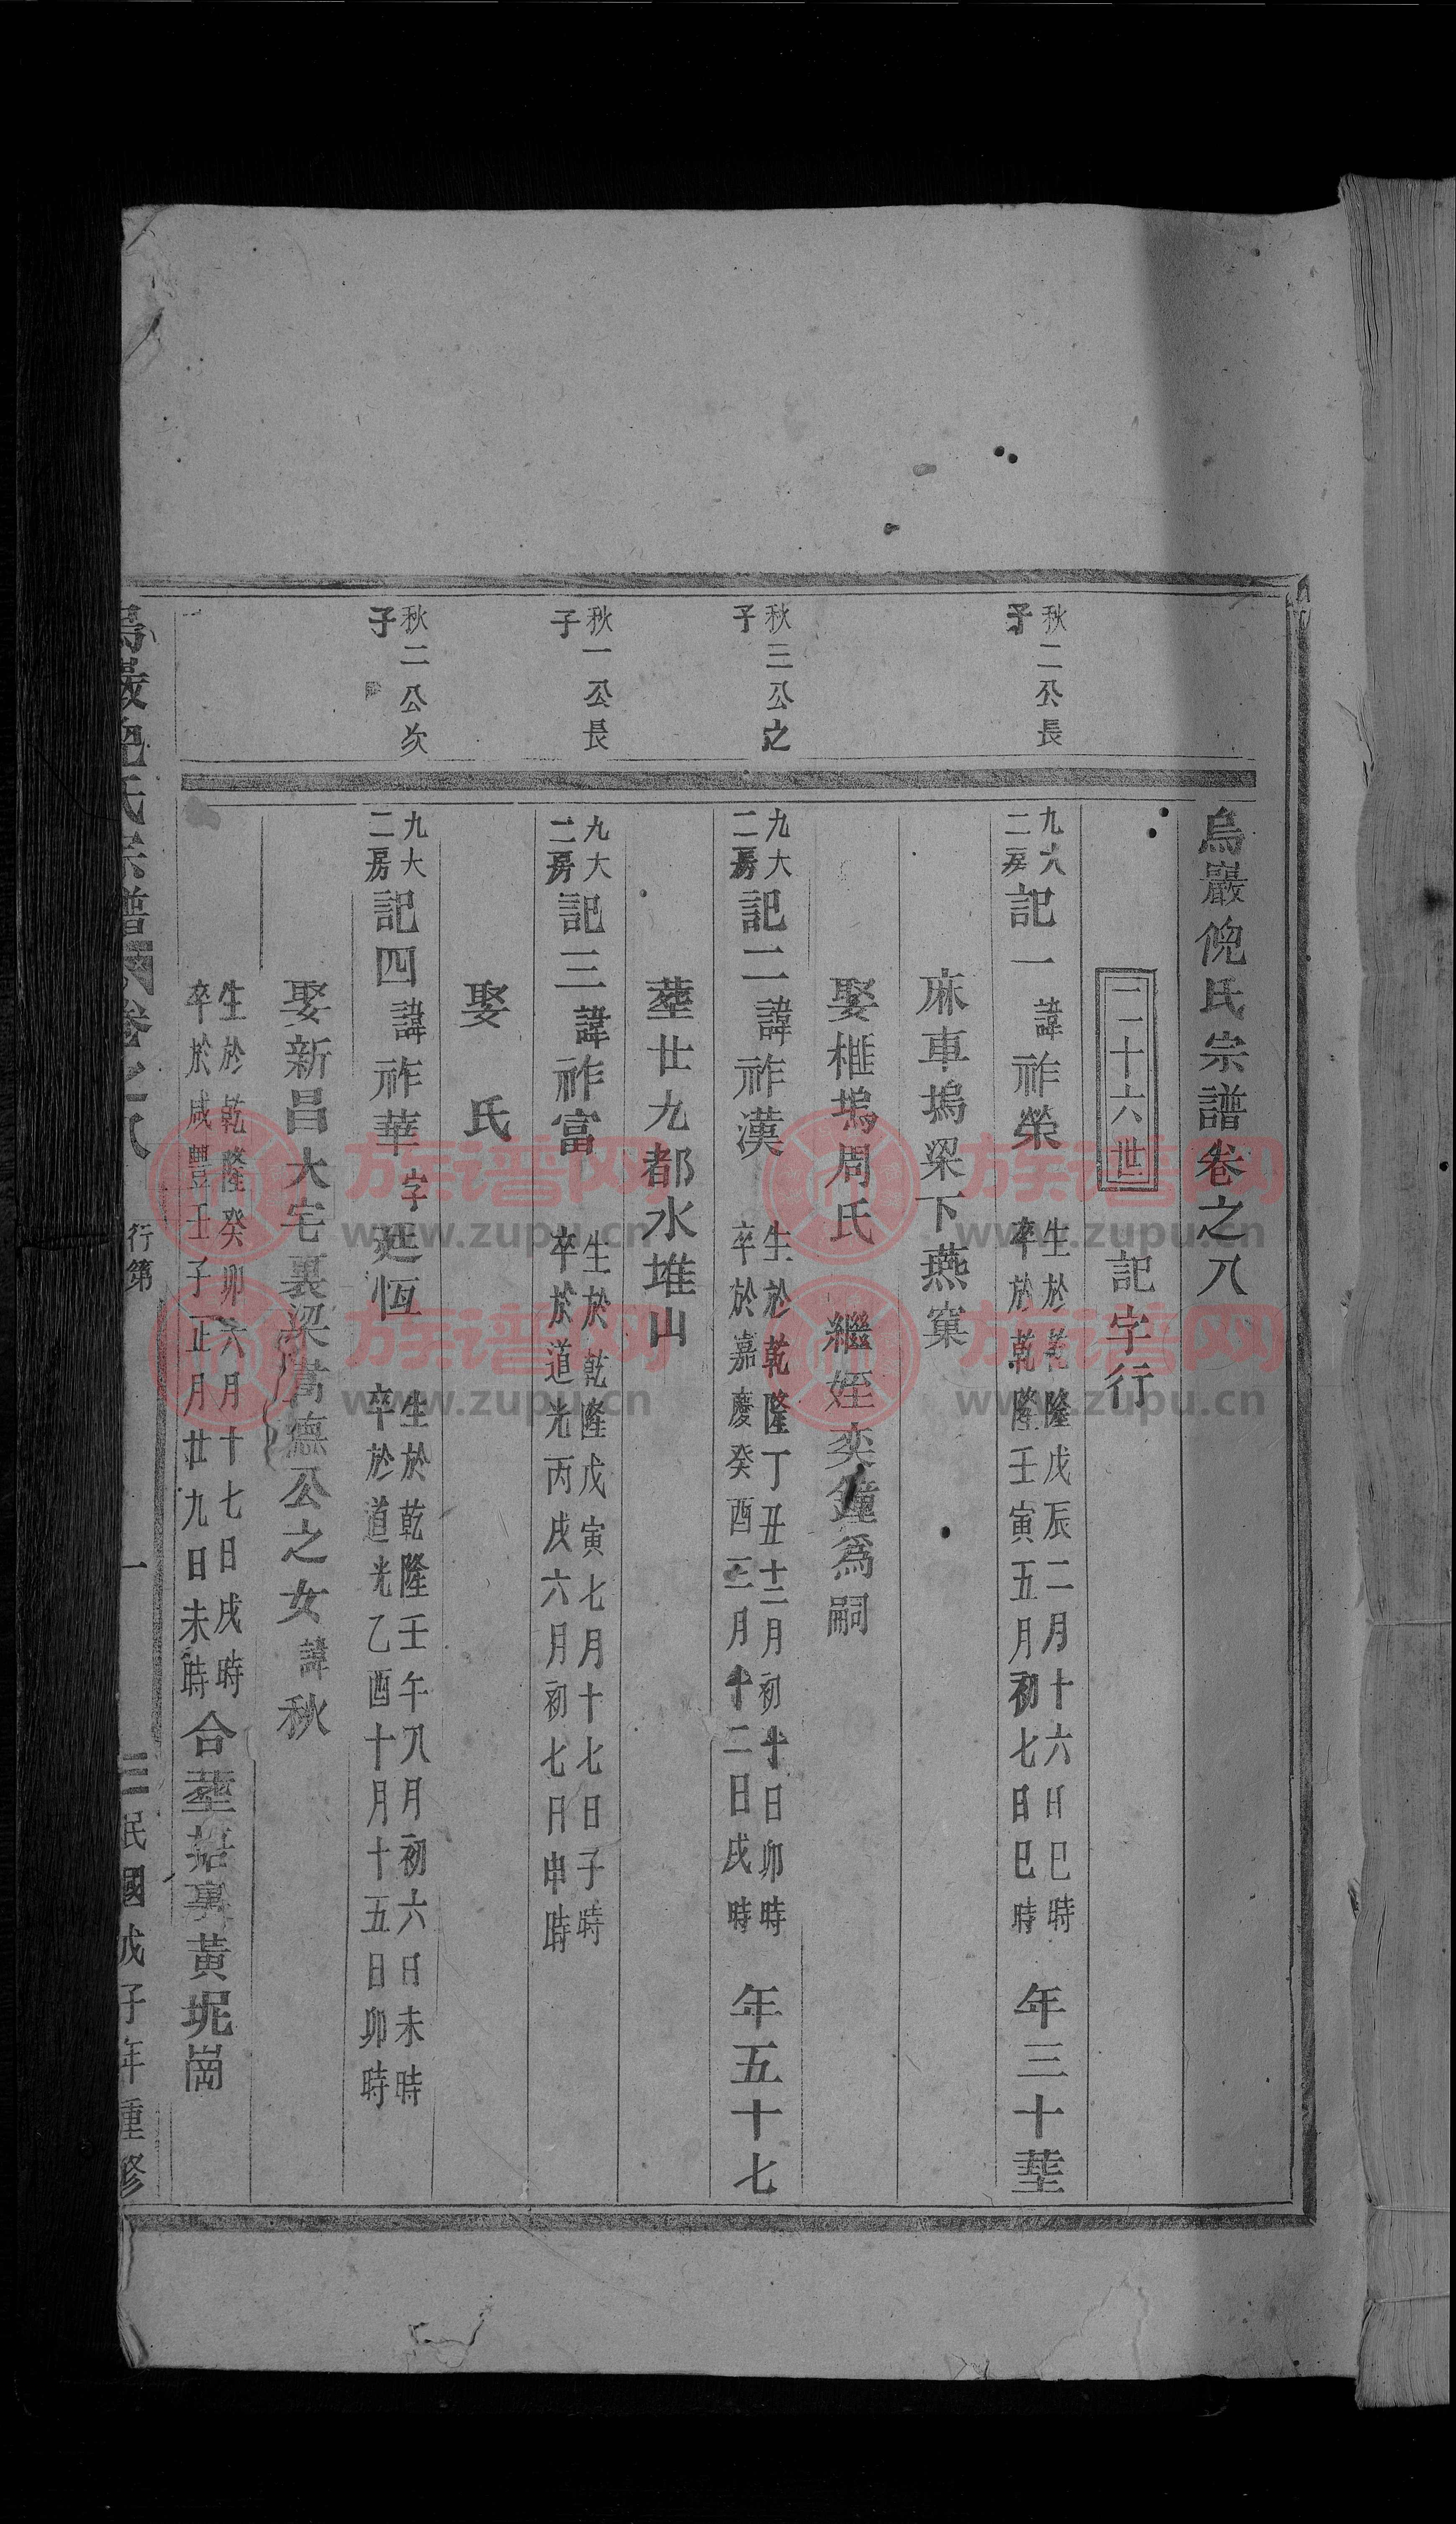 烏巖俛氏宗譜卷之八
二十六世
記字行
秋二公長
子
九大
二房
記一諱祚榮
生於乾隆戊辰二月十六日巳時
卒於乾隆壬寅五月初七日巳時
年三十塟
麻車塢梁下燕窠
娶榧塢周氏 繼姪奕鐘爲嗣
秋三公之
子
九大
二房
記二諱祚漢
生於乾隆丁丑十二月初十日卯時
卒於嘉慶癸酉三月十二日戌時
年五十七
塟廿九都水堆山
秋一公長
子
九大
二房
記三諱祚富
生於乾隆戊寅七月十七日子時
卒於道光丙戌六月初七日申時
娶 氏
秋二公次
子
九大
二房
記四諱祚華字廷恆
生於乾隆壬午八月初六日未時
卒於道光乙酉十月十五日卯時
娶新昌大宅裏梁嵩德公之女諱秋
生於乾隆癸卯六月十七日戌時
卒於咸豐壬子正月廿九日未時
合塟裏黃坭崗
烏巖俛氏宗譜卷之八
行第
一
民國戊子年重修
族谱网
www.zupu.cn
族谱网
www.zupu.cn
族谱网
www.zupu.cn
族谱网
www.zupu.cn